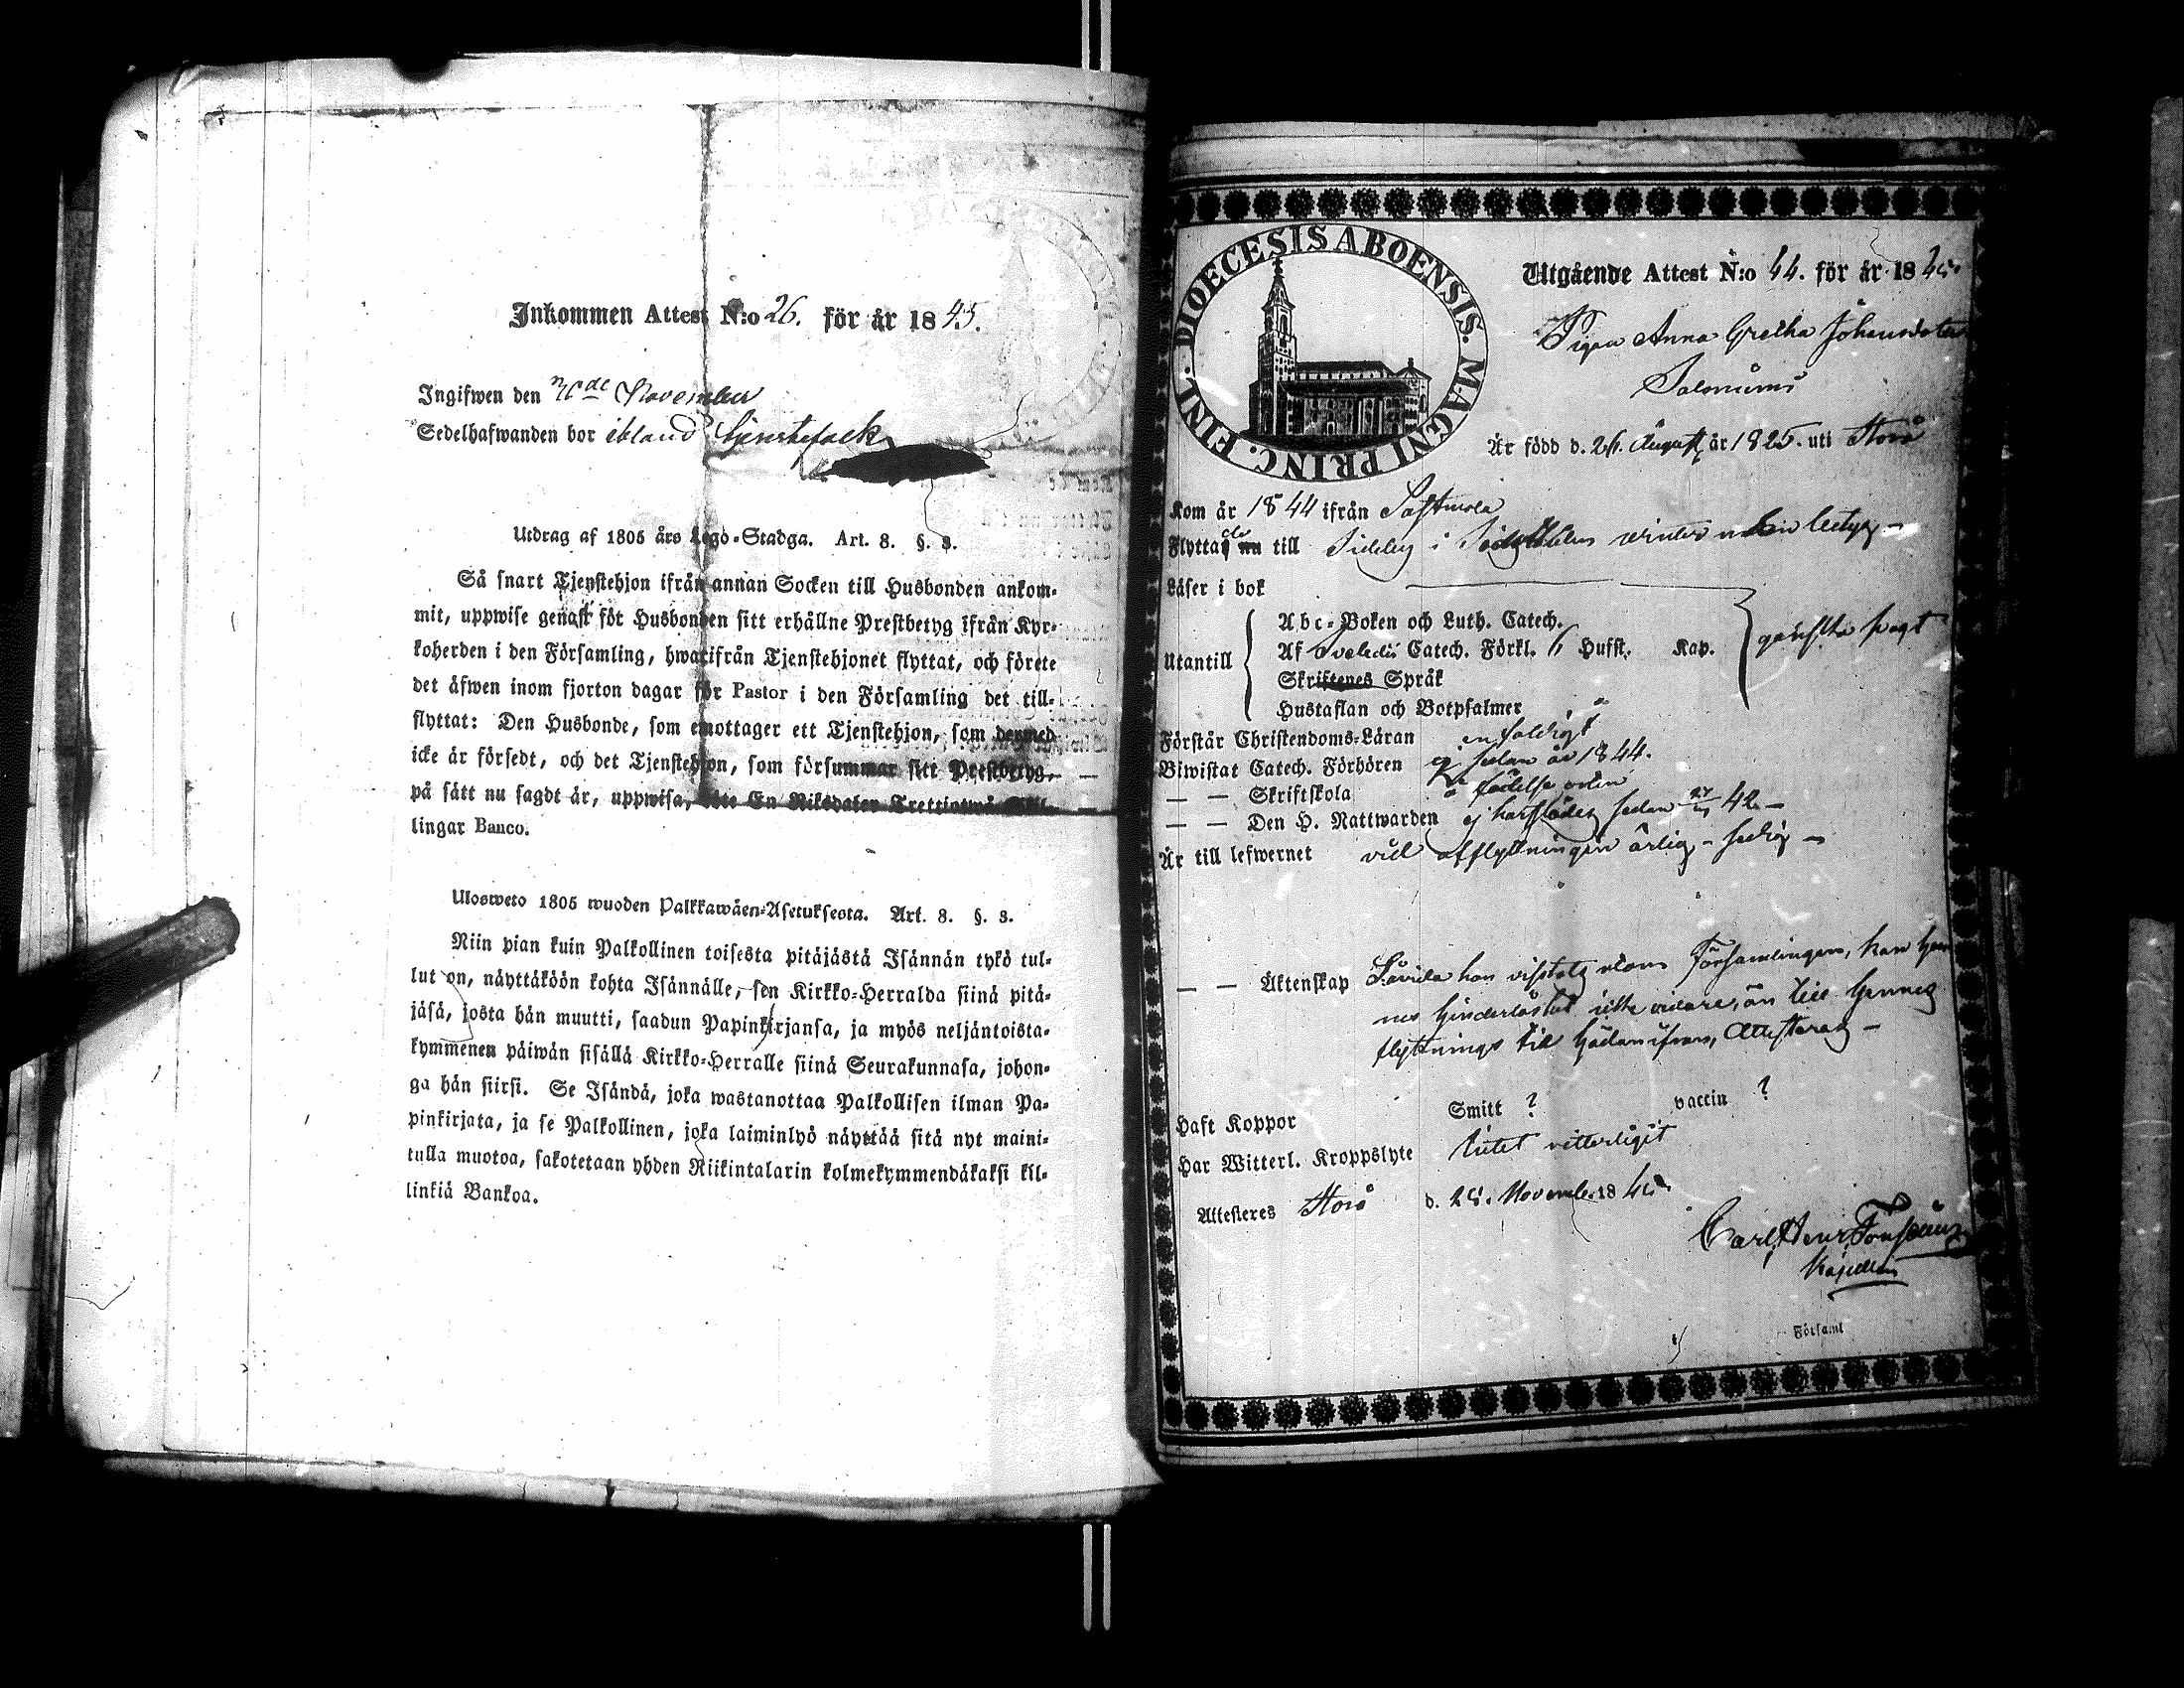 Inkommen Attest N:o 26. för år 1845.
Ingifwen den November
Sedelhafwanden bor ibland tjenstefolk
Utdrag af 1805 års Lego-Stadga. Art. 8. §. 3.
Så snart Tjenstehjon ifrån annan Socken till Husbonden ankom-
mit, uppwise genast för Husbonden sitt erhållne Prestbetyg ifrån Kyr-
koherden i den Församling, hwarifrån Tjenstehjonet flyttat, och förete
det äfwen inom fjorton dagar för Pastor i den Församling det till-
flyttat: Den Husbonde, som emottager ett Tjenstehjon, som dermed
icke är försedt, och det Tjenstehjon, som försummar sitt Prestbetyg,
på sätt nu sagdt är, uppwisa, böte En Riksdaler Trettiotwå Skil-
lingar Banco.
Ulosweto 1805 wuoden Palkkawäen-Asetuksesta. Art. 8. §. 3.
Niin pian kuin Palkollinen toisesta pitäjästä Isännän tykö tul-
lut on, näyttäköön kohta Isännälle, sen Kirkko-Herralda siinä pitä-
jäsä, josta hän muutti, saadun Papinkirjansa, ja myös neljäntoista-
kymmenen päiwän sisällä Kirkko-Herralle siinä Seurakunnasa, johon-
ga hän siirsi. Se Isändä, joka wastanottaa Palkollisen ilman Pa-
pinkirjata, ja se Palkollinen, joka laiminlyö näyttää sitä nyt maini-
tulla muotoa, sakotetaan yhden Riikintalarin kolmekymmendäkaksi kil-
linkiä Bankoa.
DIOECESIS ABOENSIS. MAGNI PRINC. FINL.
Utgående Attest N:o 44. för år 1845.
Pigan Anna Gretha Johansdotter
Är född d. 26. August år 1825. uti Storå
Kom år 1844 ifrån Sastmola
Flyttade till Sideby i
Läser i bok
Utantill
Abc-Boken och Luth. Catech.
Af Svebelii Catech. Förkl. 6 Hufst. Kap.
ganska svagt
Skriftenes Språk
Hustaflan och Botpsalmer
Förstår Christendoms-Läran enfaldigt
Biwistat Catech. Förhören ej sedan år 1844.
— — Skriftskola i födelse orten
— — Den H. Nattwarden ej härstädes sedan 42 —
Är till lefwernet vid afflyttningen ärlig - sedig —
— — Äktenskap Såvida hon vistats utom Församlingen, kan hen-
nes hinderlöshet icke vidare, än till hennes
flyttnings tid hädanifrån, Attesteras —
Haft Koppor Smitt ? vaccin ?
Har Witterl. Kroppslyte Intet vitterligit
Attesteres Storå d. 25. November 1845
Carl Henr
Kapellan
Församl